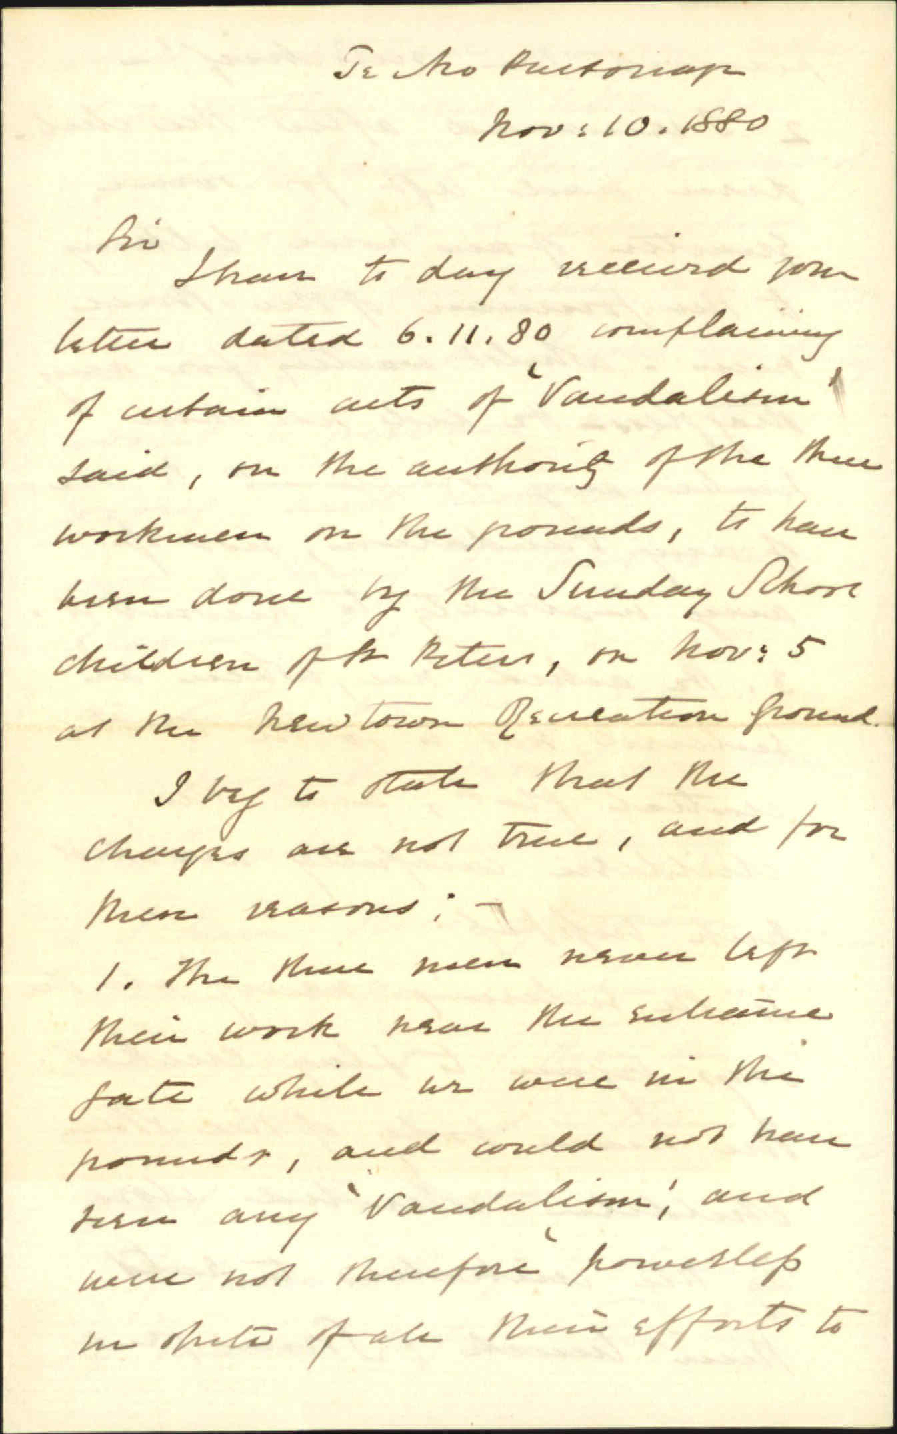 Te Aro Parsonage
Nov: 10. 1880
Sir
I have to day received your
letter dated 6.11.80 complaining
of certain acts of 'Vandalism'
said, on the authority of the three
workmen on the grounds, to have
been done by the Sunday School
children of St Peters, on Nov: 5
at the Newtown Recreation Ground.
I beg to state that the
charges are not true, and for
these reasons: -
1. The three men never left
their work near the entrance
gate while we were in the
grounds, and could not have
seen any 'Vandalism', and
were not therefore 'powerless
in spite of all their efforts to